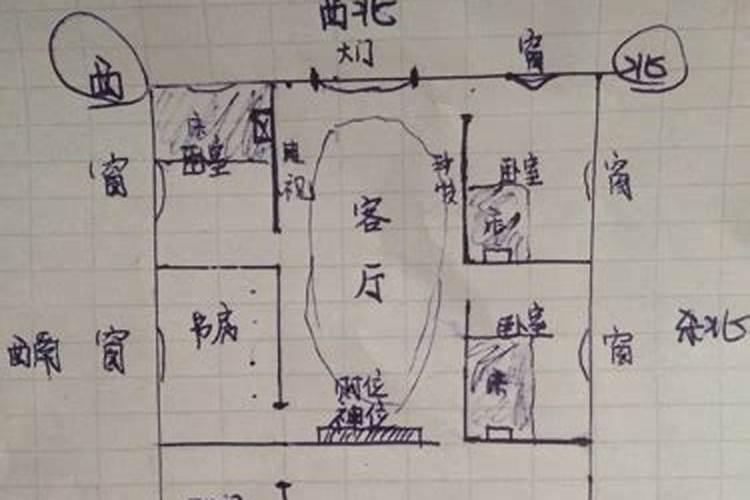 西北
大门
窗
西
北
床
卧室
电视
沙发
卧室
窗
窗
床
客厅
书房
卧室
西南
窗
窗
东北
床
财位
神位